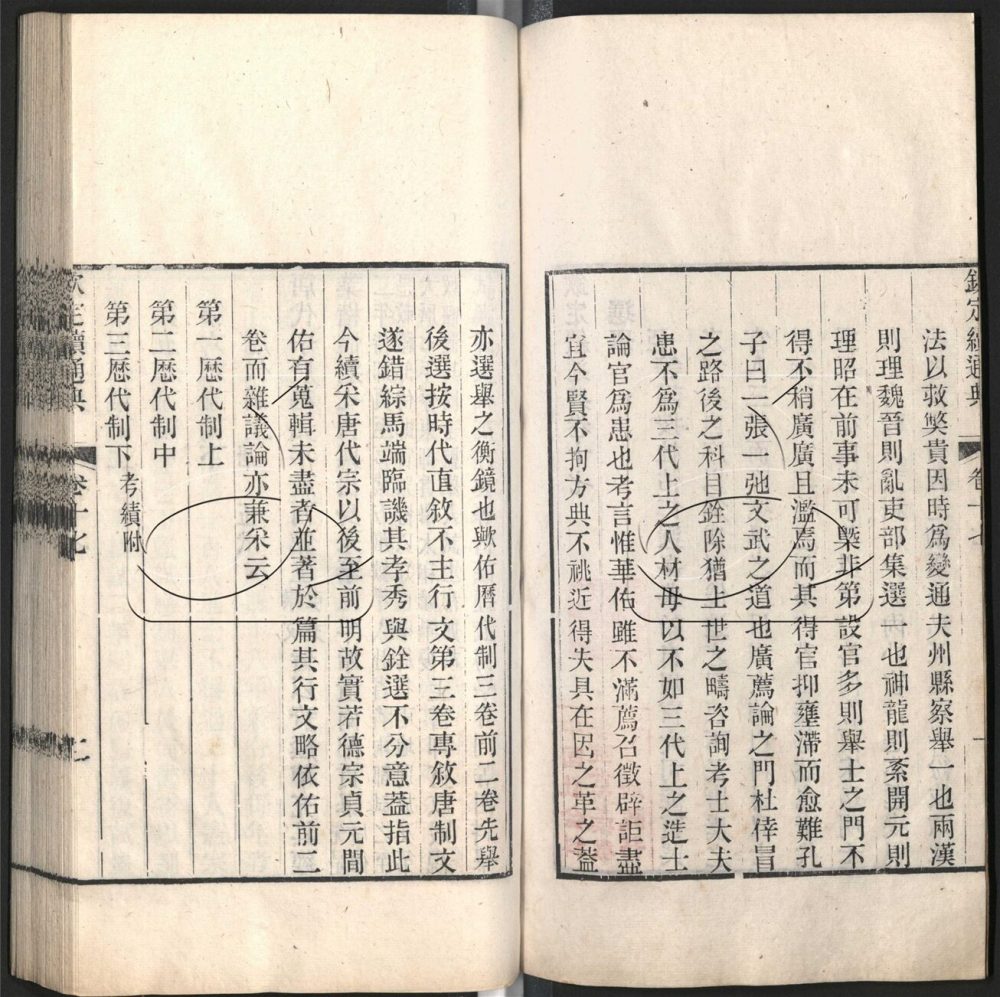 欽定續通典 卷十七
法以救獘貴因時爲變通夫州縣察舉一也兩漢
則理魏晉則亂吏部集選一也神龍則紊開元則
理昭在前事未可槩非第設官多則舉士之門不
得不稍廣廣且濫焉而其得官抑壅滯而愈難孔
子曰一張一弛文武之道也廣薦論之門杜倖冐
之路後之科目銓除猶上世之疇咨詢考士大夫
患不爲三代上之人材毋以不如三代上之造士
論官爲患也考言惟華佑雖不滿薦召徵辟詎盡
宜今賢不拘方典不祧近得失具在因之革之葢
亦選舉之衡鏡也歟佑曆代制三卷前二卷先舉
後選按時代直敘不主行文第三卷專敘唐制文
遂錯綜馬端臨譏其孝秀與銓選不分意葢指此
今續采唐代宗以後至前明故實若德宗貞元間
佑有蒐輯未盡者並著於篇其行文略依佑前二
卷而雜議論亦兼采云
第一歷代制上
第二歷代制中
第三歷代制下 考績附
欽定續通典 卷十七